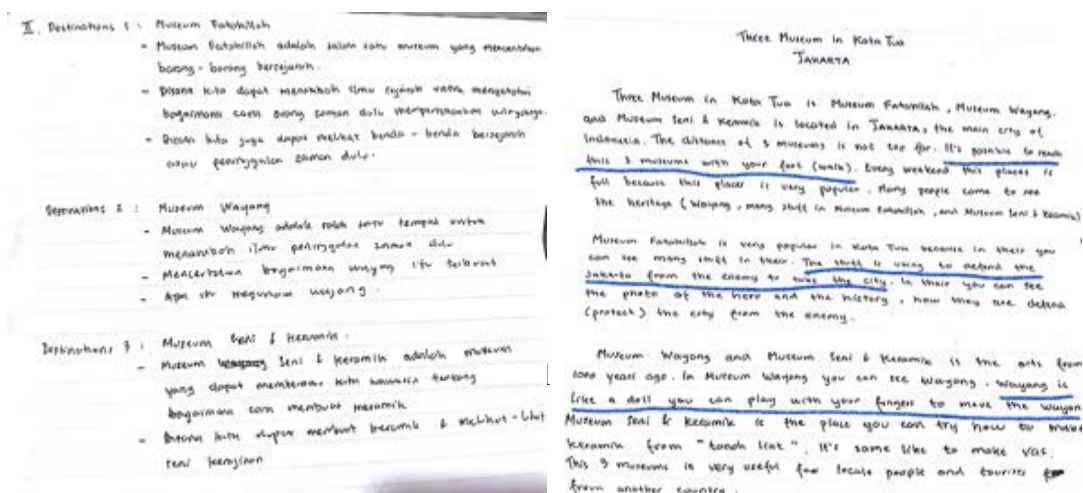 II. Destinations 1 : Museum Fatahillah
- Museum Fatahillah adalah salah satu museum yang menceritakan
barang - barang bersejarah.
- Disana kita dapat menambah ilmu sejarah untuk mengetahui
bagaimana cara orang zaman dulu mempertahankan wilayahnya.
- Disana kita juga dapat melihat benda - benda bersejarah
atau peninggalan zaman dulu.
Destinations 2 : Museum Wayang
- Museum Wayang adalah salah satu tempat untuk
menambah ilmu peninggalan zaman dulu
- Menceritakan bagaimana wayang itu
- Apa itu wayang.
Destinations 3 : Museum Seni & Keramik.
- Museum Seni & Keramik adalah museum
yang dapat kita tentang
bagaimana cara membuat keramik
- Disana kita dapat membuat keramik & melihat - lihat
seni kerajinan
Three Museum in Kota Tua
JAKARTA
Three Museum in Kota Tua is Museum Fatahillah, Museum Wayang,
and Museum Seni & Keramik is located in JAKARTA, the main city of
Indonesia. The distance of 3 museums is not too far. It's possible to reach
this 3 museums with your foot (walk). Every weekend this places is
full because this places is very popular. Many people come to see
the heritage (Wayang, many stuff in Museum Fatahillah, and Museum Seni & Keramik)
Museum Fatahillah is very popular in Kota Tua because in their you
can see many stuff in their. The stuff is using to defend the
Jakarta from the enemy to take the city. In their you can see
the photo of the hero and the history, how they are defend
(protect) the city from the enemy.
Museum Wayang and Museum Seni & Keramik is the arts from
1000 years ago. In Museum Wayang you can see Wayang. Wayang is
like a doll you can play with your fingers to move the wayan
Museum Seni & Keramik is the place you can try how to make
keramik from "tanah liat". It's same like to make vas.
This 3 museums is very useful for locale people and tourist
from another country.